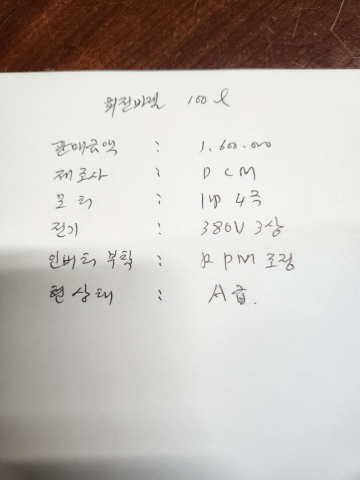 회전바렐 100ℓ
판매금액 : 1,600.000
제조사 : DCM
모터 : 1HP 4극
전기 : 380V 3상
인버터 부착 : RPM 조정
현상태 : A급.